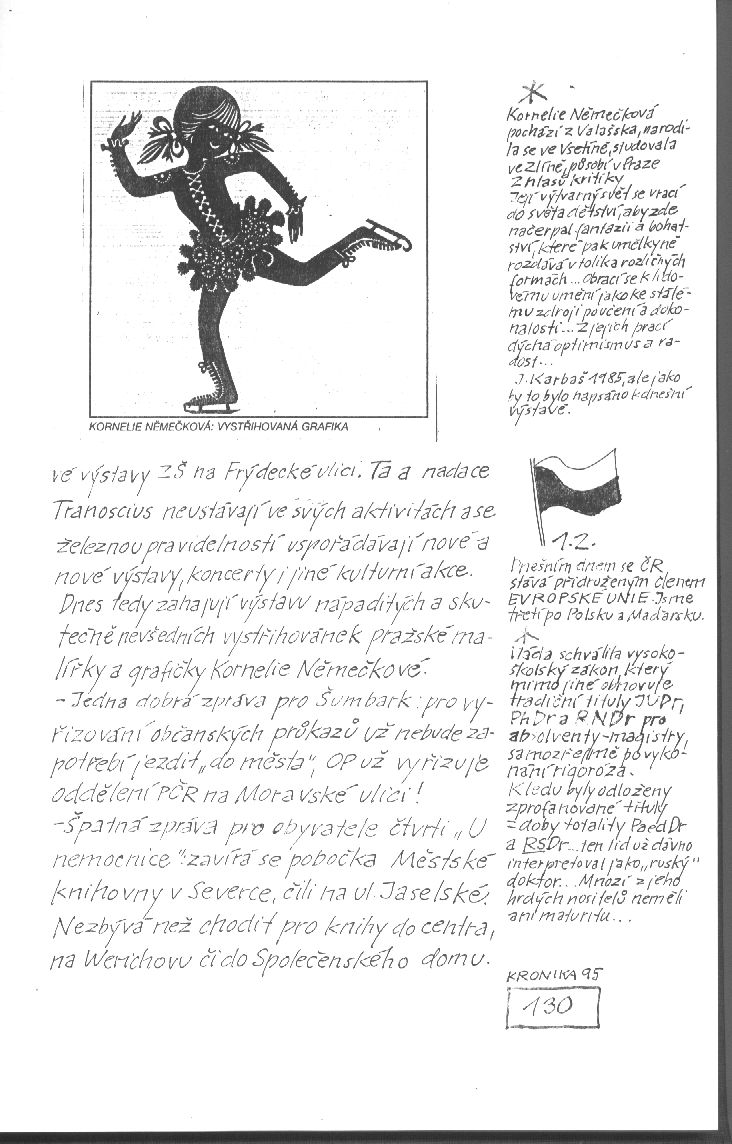 KORNELIE NĚMEČKOVÁ: VYSTŘIHOVANÁ GRAFIKA
vé výstavy ZŠ na Frýdecké ulici. Ta a nadace
Tranoscius neustávají ve svých aktivitách a se
železnou pravidelností uspořádávají nové a
nové výstavy, koncerty i jiné kulturní akce.
Dnes tedy zahajují výstavu nápaditých a sku-
tečně nevšedních vystřihovánek pražské ma-
lířky a grafičky Kornelie Němečkové.
- Jedna dobrá zpráva pro Šumbark: pro vy-
řizování občanských průkazů už nebude za-
potřebí jezdit „do města“, OP už vyřizuje
oddělení PČR na Moravské ulici!
- Špatná zpráva pro obyvatele čtvrti „U
nemocnice“: zavírá se pobočka Městské
knihovny v Severce, čili na ul. Jaselské.
Nezbývá než chodit pro knihy do centra,
na Werichovu či do Společenského domu.
Kornelie Němečková
pochází z Valašska, narodi-
la se ve Vsetíně, studovala
ve Zlíně, působí v Praze
Z hlasů kritiky
Její výtvarný svět se vrací
do světa dětství, aby zde
načerpal fantazii a bohat-
ství, které pak umělkyně
rozdává v tolika rozličných
formách... Obrací se k lido-
vému umění jako ke stálé-
mu zdroji poučení a doko-
nalosti... Z jejích prací
dýchá optimismus a ra-
dost...
J. Karbaš 1985, ale jako
by to bylo napsáno k dnešní
výstavě.
1.2.
Dnešním dnem se ČR
stává přidruženým členem
EVROPSKÉ UNIE. Jsme
třetí po Polsku a Maďarsku.
Vláda schválila vysoko-
školský zákon, který
mimo jiné obnovuje
tradiční tituly JUDr,
PhDr a RNDr pro
absolventy-magistry,
samozřejmě po vyko-
nání rigoróza.
K ledu byly odloženy
zprofanované tituly
z doby totality PaedDr
a RSDr... ten lid už dávno
interpretoval jako „ruský“
doktor... Mnozí z jeho
hrdých nositelů neměli
ani maturitu...
KRONIKA 95
130